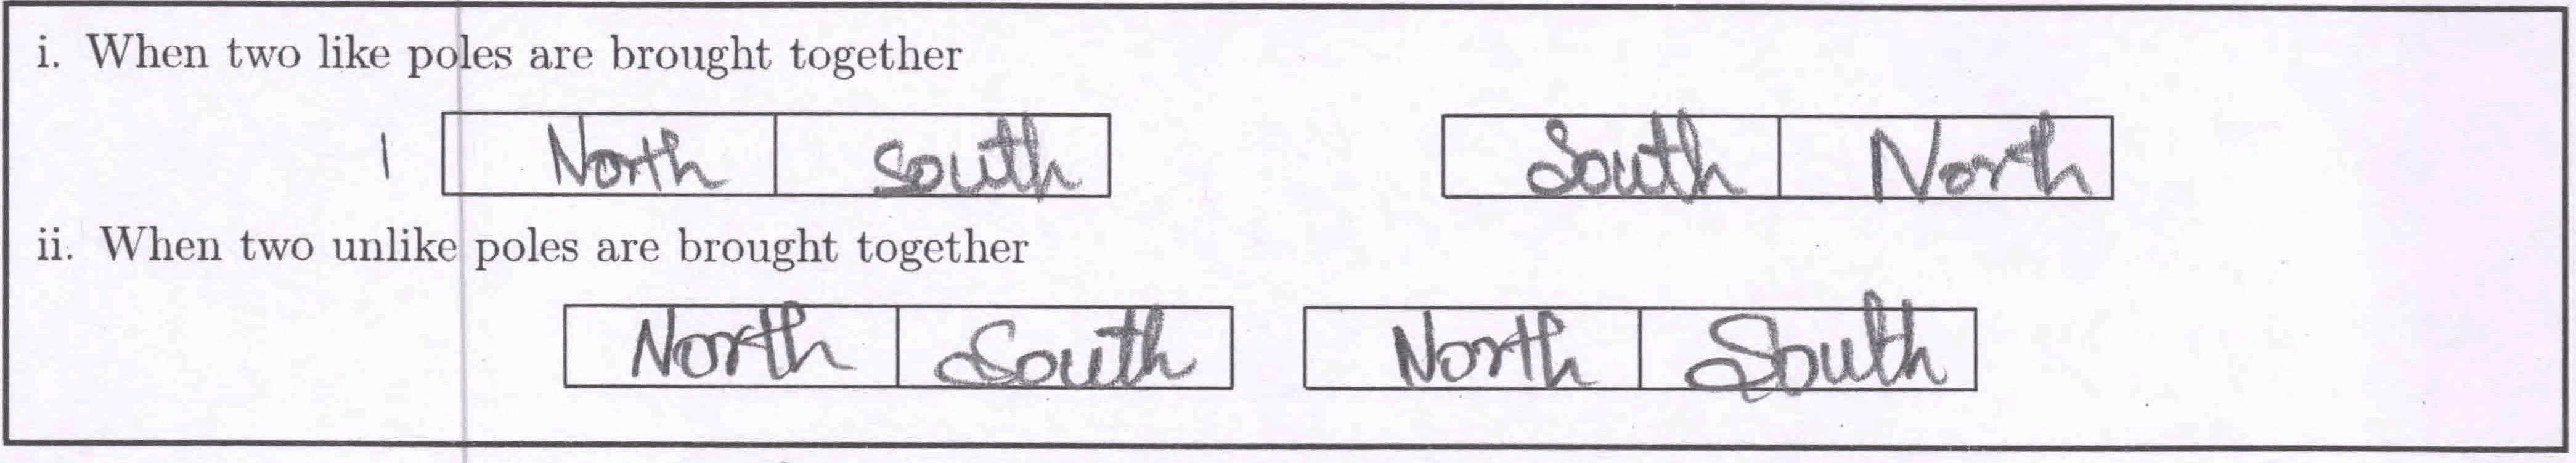 i. When two like poles are brought together
1 North south South North
ii. When two unlike poles are brought together
North South North South